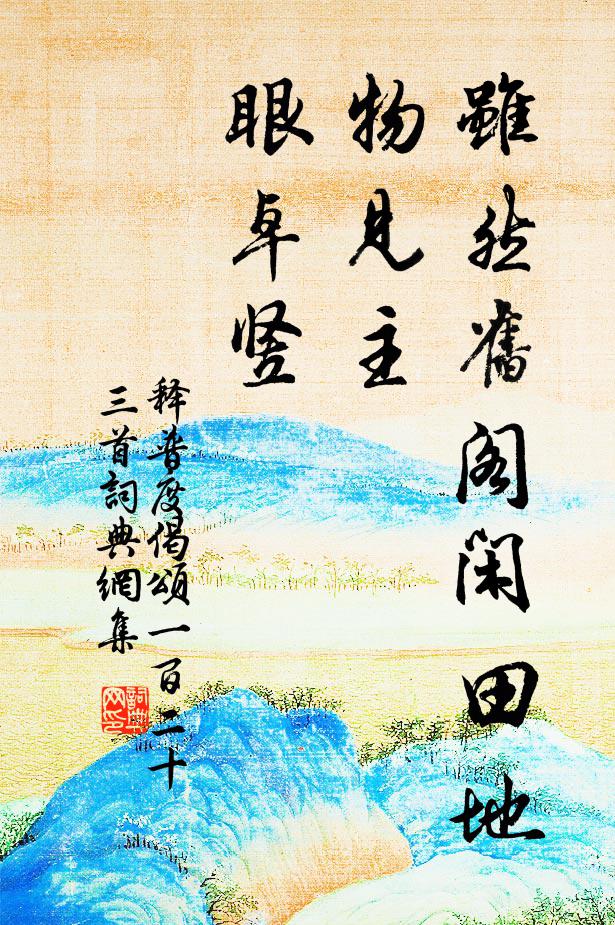 雖然舊閣閑田地
物見主
眼卓竖
释普度偈頌一百二十
三首詞典網集